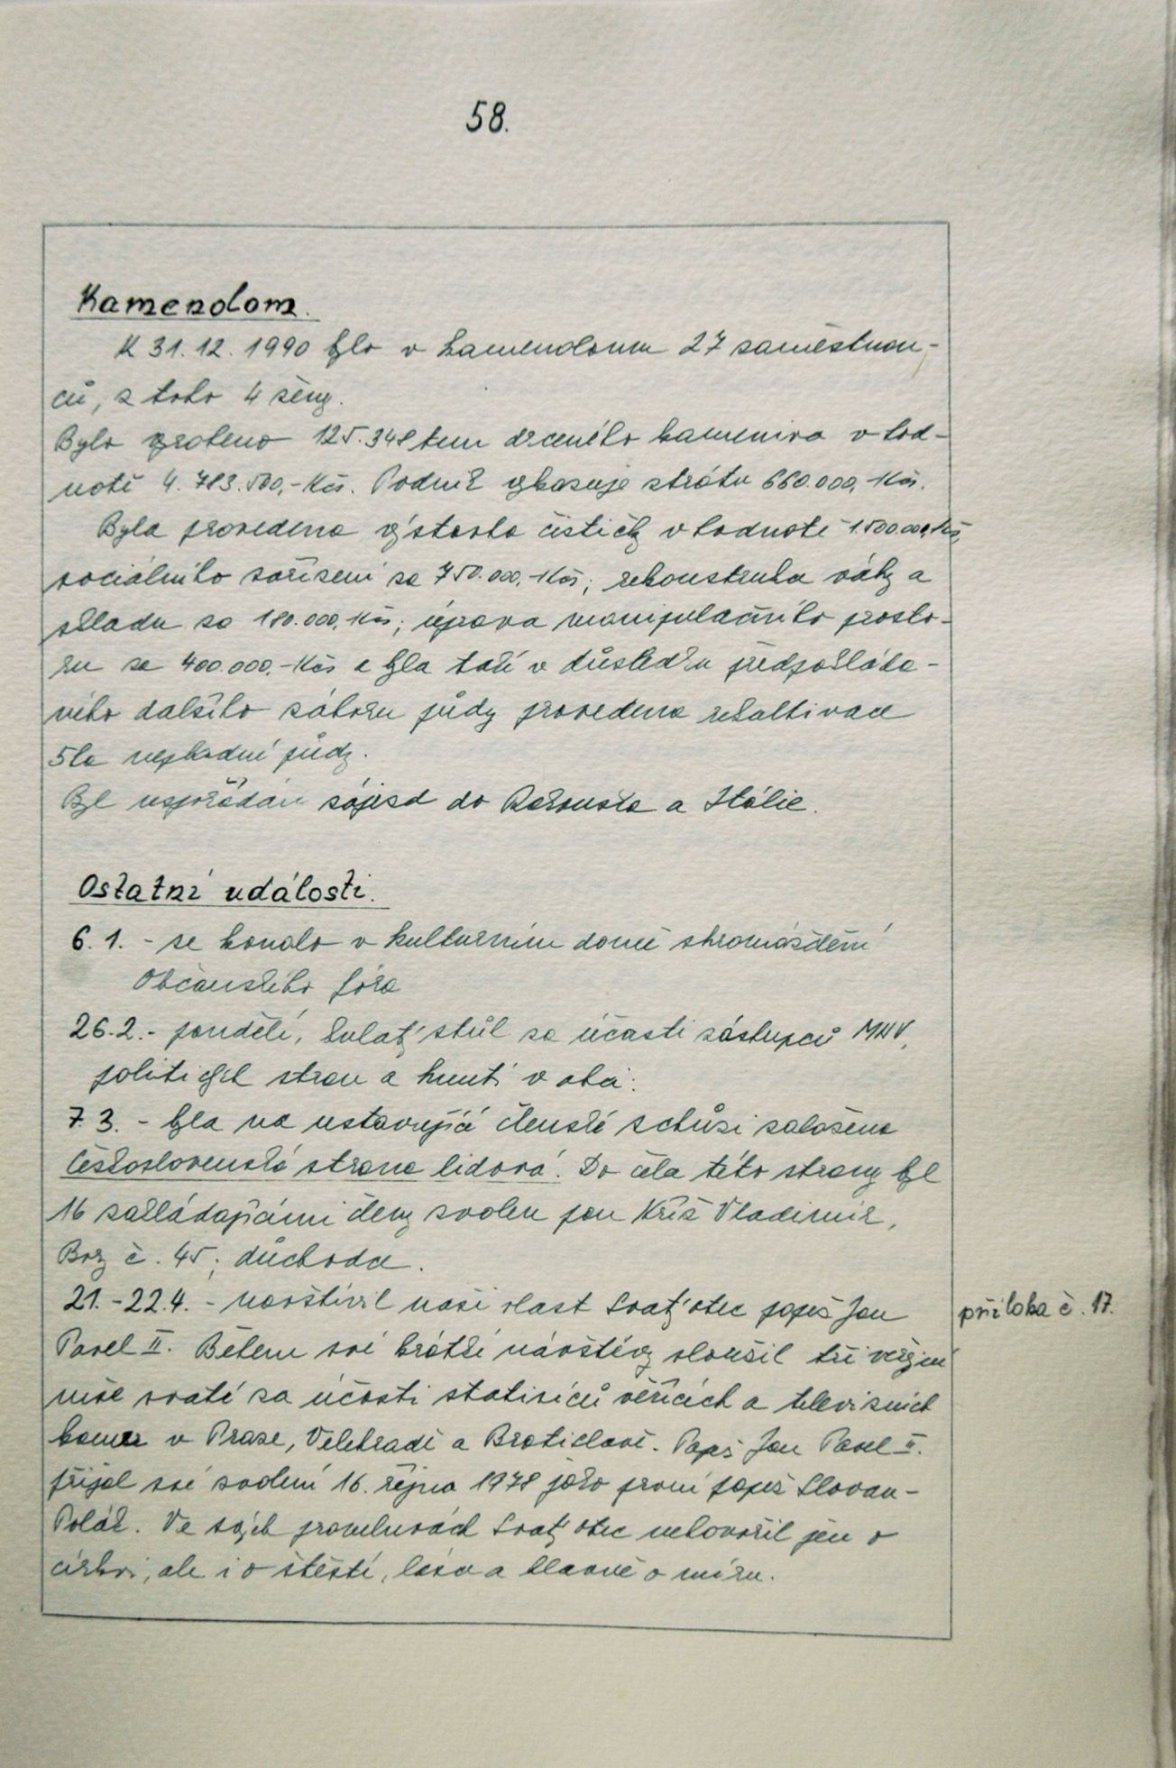 58.
Kamenolom.
K 31.12.1990 bylo v kamenolomu 27 zaměstnan-
ců, z toho 4 ženy.
Bylo vyrobeno 125.348 tun drceného kameniva v hod-
notě 4.783.500,- Kčs. Podnik vykazuje ztrátu 660.000,- Kčs.
Byla provedena výstavba čističky v hodnotě 1.500.000,- Kčs,
sociálního zařízení za 750.000,- Kčs; rekonstrukce váhy a
skladu za 180.000,- Kčs; úprava manipulačního prosto-
ru za 400.000,- Kčs a byla také v důsledku předpokláda-
ného dalšího záboru půdy provedena rekultivace
5 ha neplodné půdy.
Byl uspořádán zájezd do Rakouska a Itálie.
Ostatní události.
6.1. - se konalo v kulturním domě shromáždění
Občanského fóra
26.2. - pondělí, kulatý stůl za účasti zástupců MNV,
politických stran a hnutí v obci.
7.3. - byla na ustavující členské schůzi založena
Československá strana lidová. Do čela této strany byl
16 zakládajícími členy zvolen pan Kříž Vladimír,
Bory č. 45, důchodce.
21.-22.4. - navštívil naši vlast Svatý otec papež Jan
příloha č. 17.
Pavel II. Během své krátké návštěvy sloužil tři veřejné
mše svaté za účasti statisíců věřících a televizních
kamer v Praze, Velehradě a Bratislavě. Papež Jan Pavel II.
přijal své zvolení 16. října 1978 jako první papež Slovan-
Polák. Ve svých promluvách Svatý otec nehovořil jen o
církvi, ale i o štěstí, lásce a hlavně o míru.